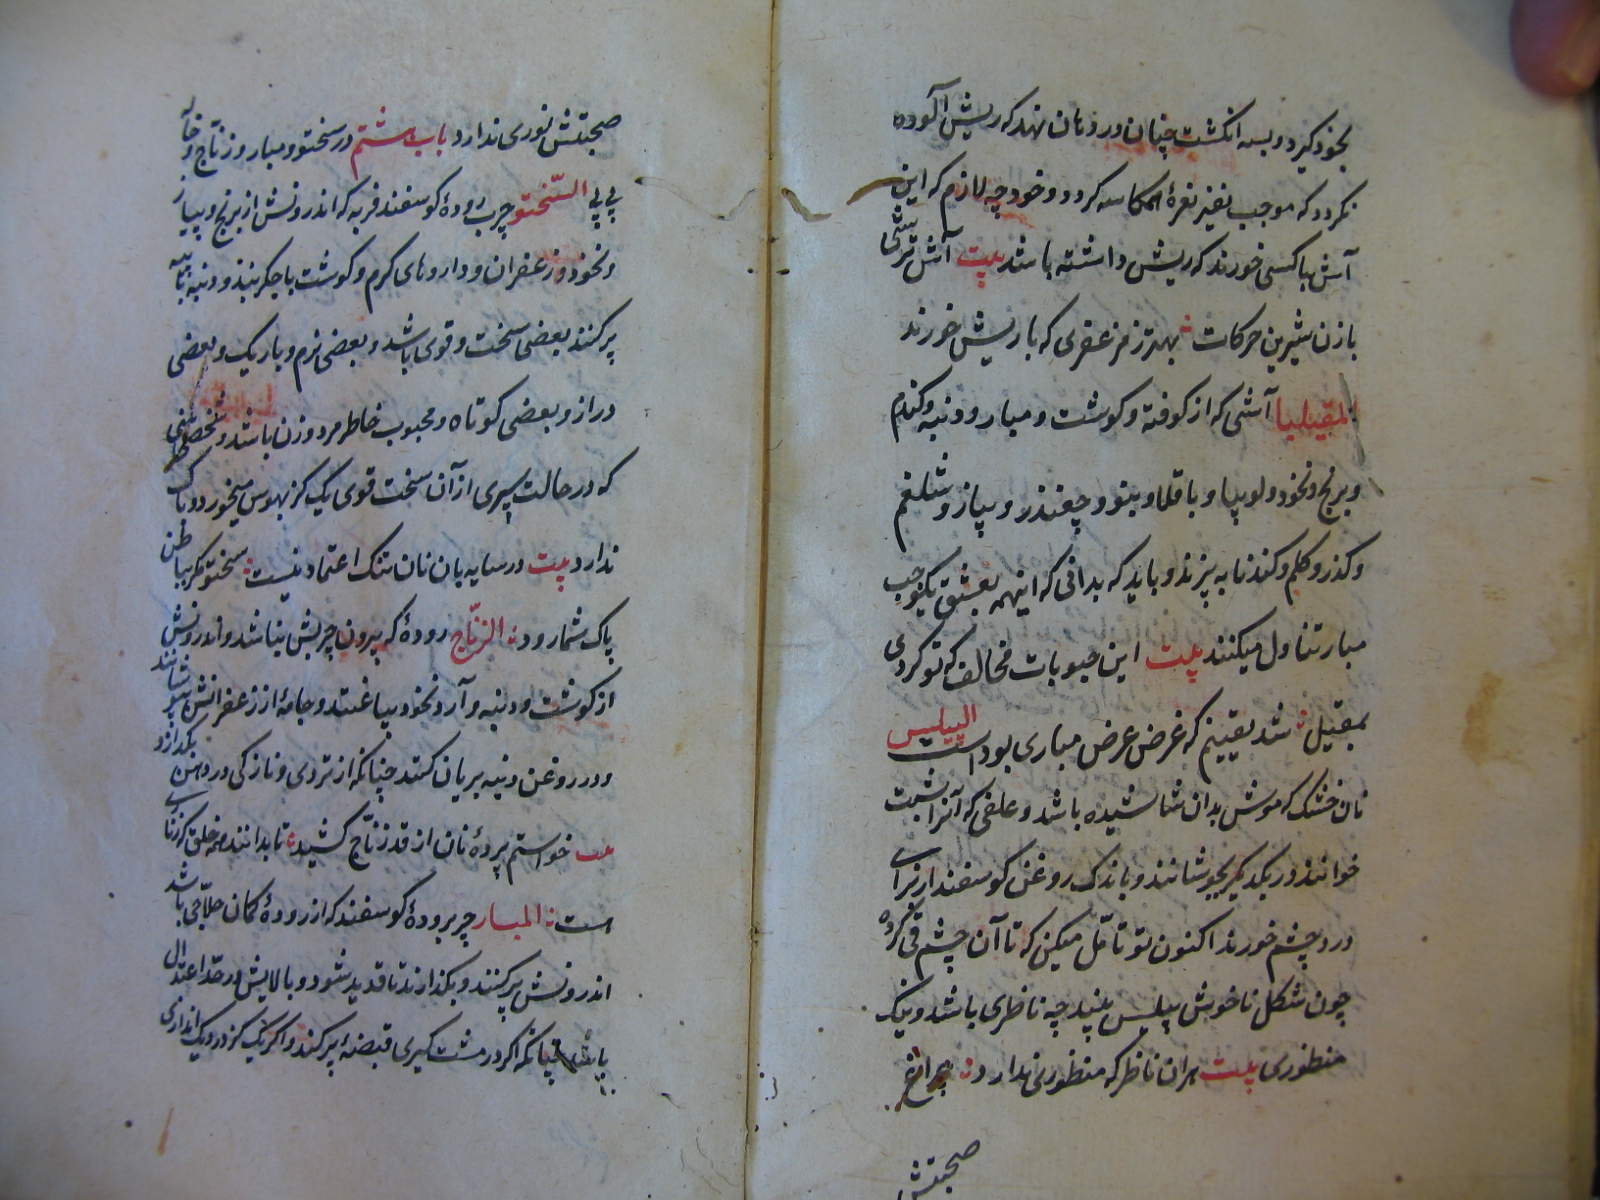 بخود گیرد و بسه انگشت چنان در دهان نهد که ریش آلوده
نگردد که موجب تغیر نعرهٔ کاسه گردد و خود چه لازم که این
آش با کسی خورند که ریش داشته باشد بیت آش ترشی
با زن شیرین حرکات بهتر ز مزعفری که با ریش خورند
المقیلیا آشی که از کوفته و گوشت و مبار و دنبه و گندم
و برنج و نخود و لوبیا و باقلا و بنو و چغندر و پیاز و شلغم
و گذر و کلم و کندنا به پزند و باید که بدانی که اینهمه بعشق یکوجب
مبار تناول میکنند بیت این حبوبات مخالف که تو کردی
بمقیل شد یقینم که غرض عرض مباری بودست البیلس
نان خشک که موش بدان شاشیده باشد و علفی که آنرا شبت
خوانند در یکدیگر بجوشانند و باندک روغن گوسفند از برای
درد چشم خورند اکنون تو تامل میکن که تا آن چشم قی کرده
چون شکل ناخوش بیلس بیند چه ناظری باشد و نیک
منظوری بیت بران ناظر که منظوری ندارد چراغ
صحبتش
صحبتش نوری ندارد باب هشتم در سختو و مبار و زناج و
پی پی السختو چرب رودهٔ گوسفند فربه که اندرونش از برنج و پیاز
و نخود و زعفران و داروهای گرم و گوشت با جگربند و دنبه
پر کنند بعضی سخت و قوی باشد و بعضی نرم و باریک و بعضی
دراز و بعضی کوتاه و محبوب خاطر مرد و زن باشد و شخصی
که در حالت پیری از آن سخت قوی یک گز بهوس میخورد و باک
ندارد بیت در سایه بان نان تنک اعتماد نیست سختو مگر میان
پاک شمارود الزناج رودهٔ که بیرون چربش نباشد و اندرونش
از گوشت و دنبه و آرد نخود بیاغنند و جامهٔ از زعفرانش
و در روغن دنبه بریان کنند چنانکه از تردی و نازکی در دهن بگدازد
بیت خواستم پردهٔ نان از قد زناج کشید تا بدانند همه خلق که
است المبار چرب رودهٔ گوسفند که از رودهٔ کمان حلاجی باشد
اندرونش پر کنند و بگذارند تا قدید شود و بالایش در حد اعتدال
باشد چنانکه اگر در مشت گیری قبضهٔ پر کند و اگر یک گز در دیگ اندازی